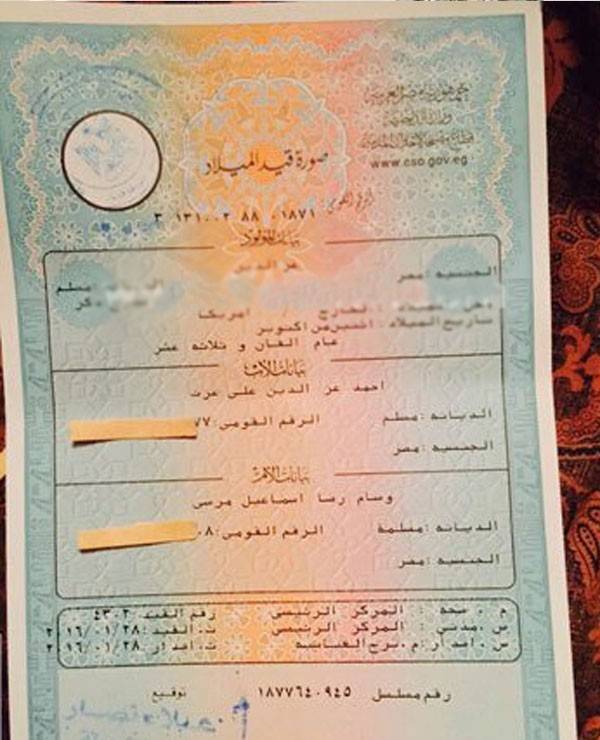 جمهورية مصر العربية
وزارة الداخلية
www.cso.gov.eg
صورة قيد الميلاد
الرقم القومى
٣ ١٣١٠٠٢ ٨٨ ٠١٨٧١
بيانات المولود
عز الدين
الجنسيه :مصر
مسلم
ذكر
الخارج امريكا
تاريخ الميلاد : اثنين من اكتوبر
عام الفان و ثلاثه عشر
بيانات الأب
احمد عز الدين على عزت
الديانه :مسلم الرقم القومى:٧٧
الجنسيه :مصر
بيانات الأم
وسام رضا اسماعيل مرسى
الديانه :مسلمة الرقم القومى:٠٨
الجنسيه :مصر
م . صحه : المركز الرئيسى رقم القيد :٤٣٠٢
س .مدنى : المركز الرئيسى ت. القيد :٢٠١٦/٠١/٢٨
س . اصدار :م .برج العباسيه ت. اصدار :٢٠١٦/٠١/٢٨
رقم مسلسل ١٨٧٧٦٤٠٩٤٥ توقيع